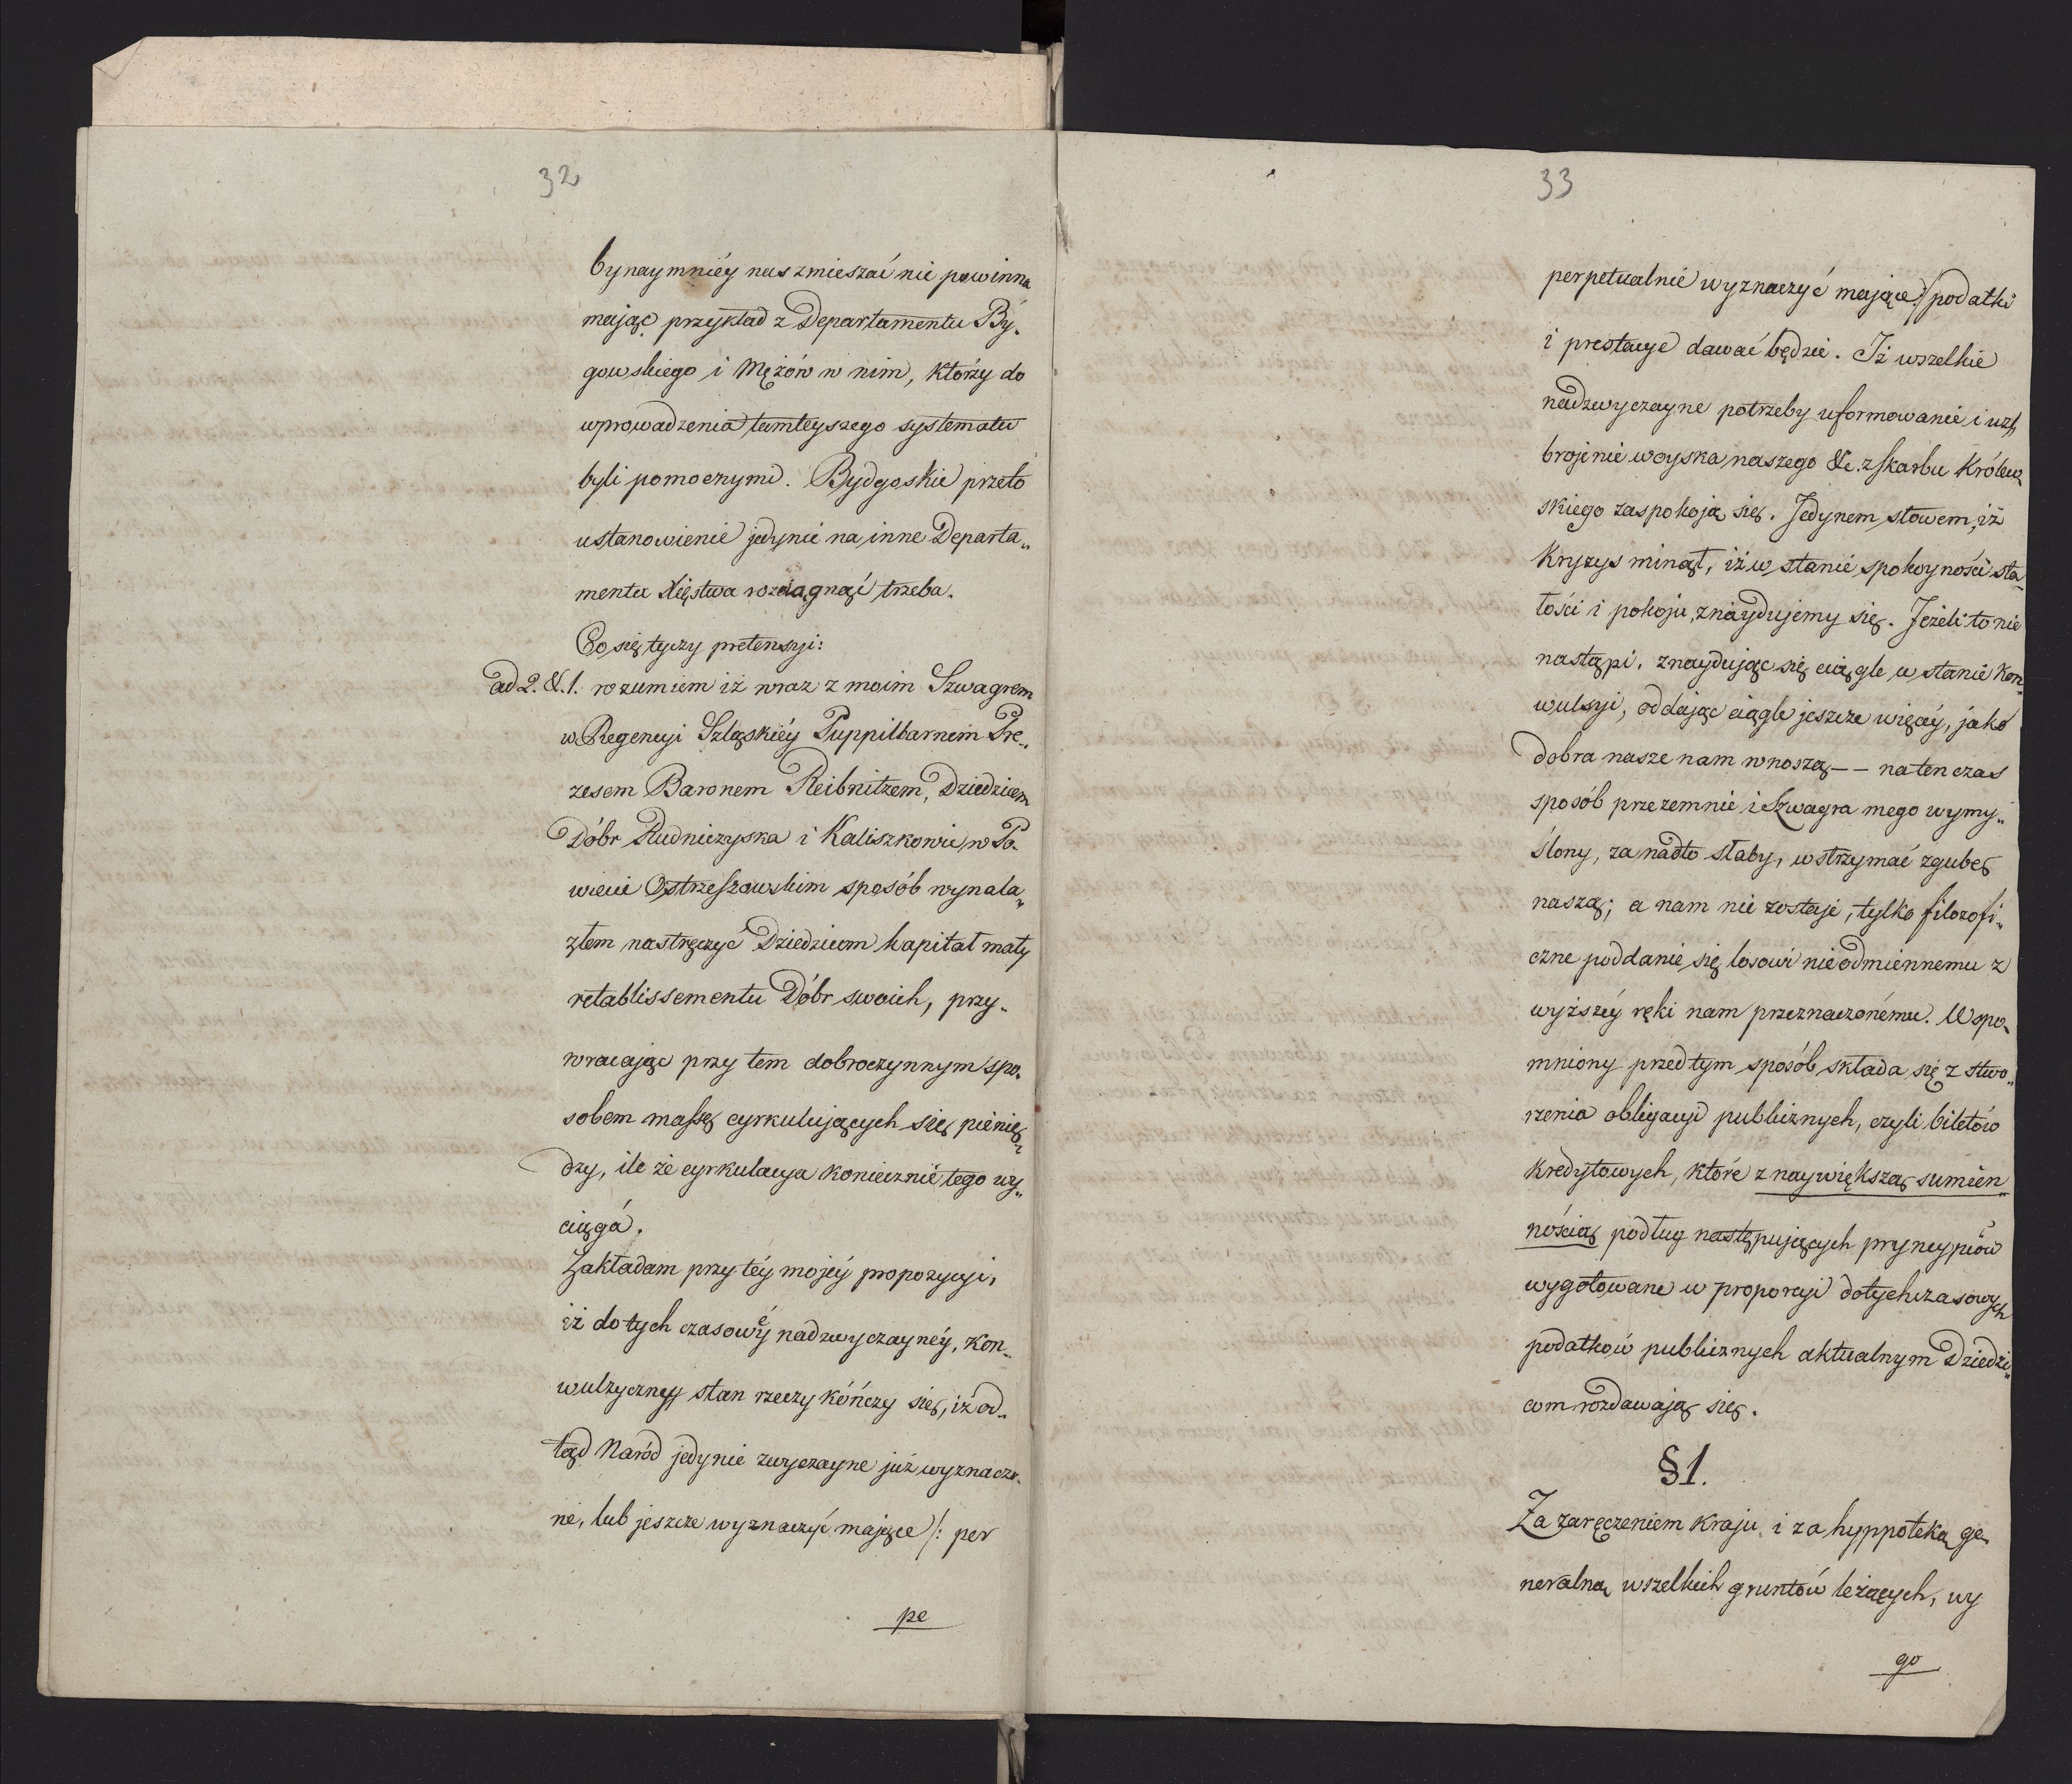 32
bynaymniéy nas zmieszać nie powinna
mając przykład z Departamentu By„
gowskiego i Mężów w nim, którzy do
wprowadzenia tamteyszego systematu
byli pomocnymi. Bydgoskie przeto
ustanowienie jedynie na inne Departa„
menta Xięstwa rozciągnąć trzeba.
Co się tyczy pretensyi:
ad 2. &. 1. rozumiem iż wraz z moim Szwagrem
w Regencyi Szląskiéy Puppillarnem Pre„
zesem Baronem Reibnitzem, Dziedzicem
Dóbr Rudniczyska i Kaliszkowic w Po„
wiecie Ostrzeszowskim sposób wynala„
złem nastręczyć Dziedzicom kapitał mały
retablissementu Dóbr swoich, przy„
wracając przy tem dobroczynnym spo„
sobem massę cyrkulujących się pienię„
dzy, ile że cyrkulacya koniecznie tego wy„
ciąga.
Zakładam przy téy mojéy propozycyi,
iż dotychczasowéy nadzwyczaynéy, kon„
wulzyczney stan rzeczy kończy się, iż od„
tąd Naród jedynie zwyczayne już wyznaczo„
ne, lub jeszcze wyznaczyć mające /: per
pe
33
perpetualnie wyznaczyć mające :/ podatki
i prestacye dawać będzie. Iż wszelkie
nadzwyczayne potrzeby uformowanie i uz„
brojenie woyska naszego &c. z skarbu Królew„
skiego zaspokoją się. Jedynem słowem, iż
Kryzys minął, iż w stanie spokoyności sta„
łości i pokoju, znaydujemy się. Jeżeli to nie
nastąpi, znaydując się ciągle w stanie Kon„
wulsyi, oddając ciągle jeszcze więcéy, jako
dobra nasze nam wnoszą — — na ten czas
sposób przezemnie i Szwagra mego wymy„
ślony, za nadto słaby, wstrzymać zgubę
naszą; a nam nie zostaje, tylko filozofi„
czne poddanie się losowi nieodmiennemu z
wyższéy ręki nam przeznaczonému. Wspo„
mniony przed tym sposób składa się z stwo„
rzenia obligacyi publicznych, czyli biletów
kredytowych, które z naywiększą sumien„
nością podług następujących pryncypiów
wygotowane w proporcyi dotychczasowych
podatków publicznych aktualnym Dziedzi„
com rozdawają się.
§ 1.
Za zaręczeniem kraju i za hyppoteką ge„
neralną wszelkich gruntów leżących, wy
go